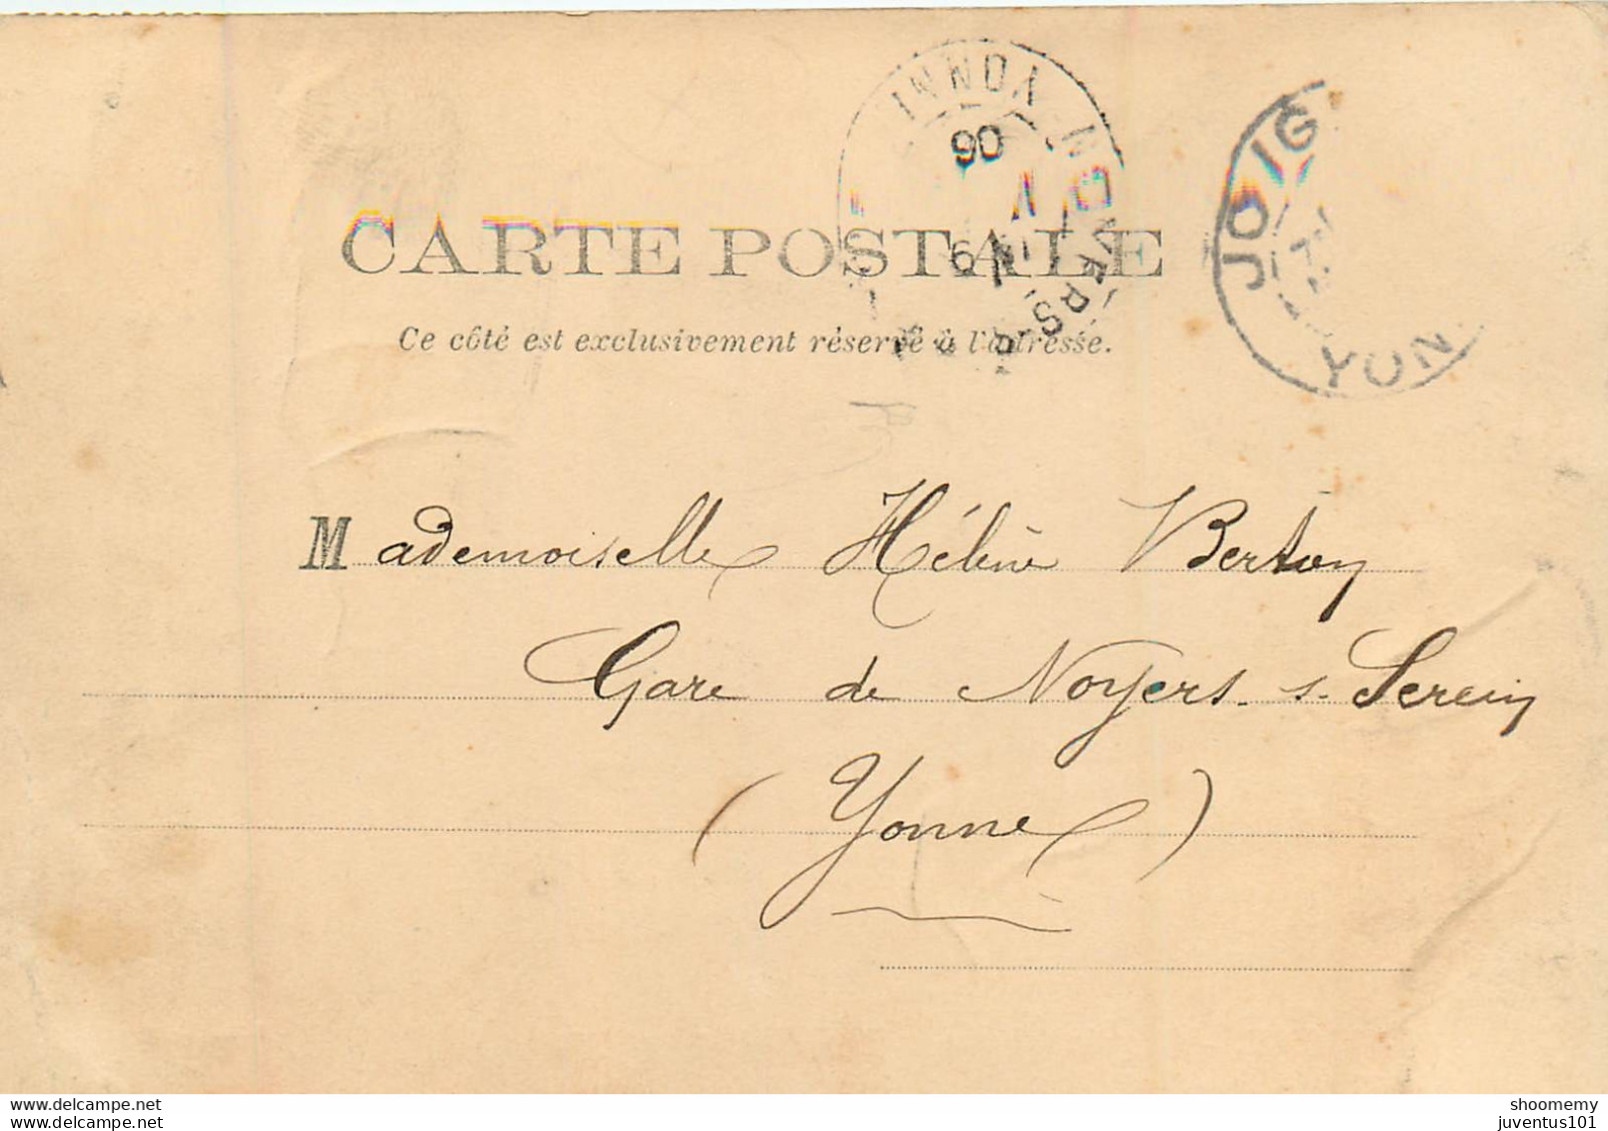 CARTE POSTALE
Ce côté est exclusivement réservé à l'adresse.
JOIG
YON
90
Mademoiselle Hélène
Gare de Noyers-s-Serein
(Yonne)
www.delcampe.net
shoomemy
juventus101